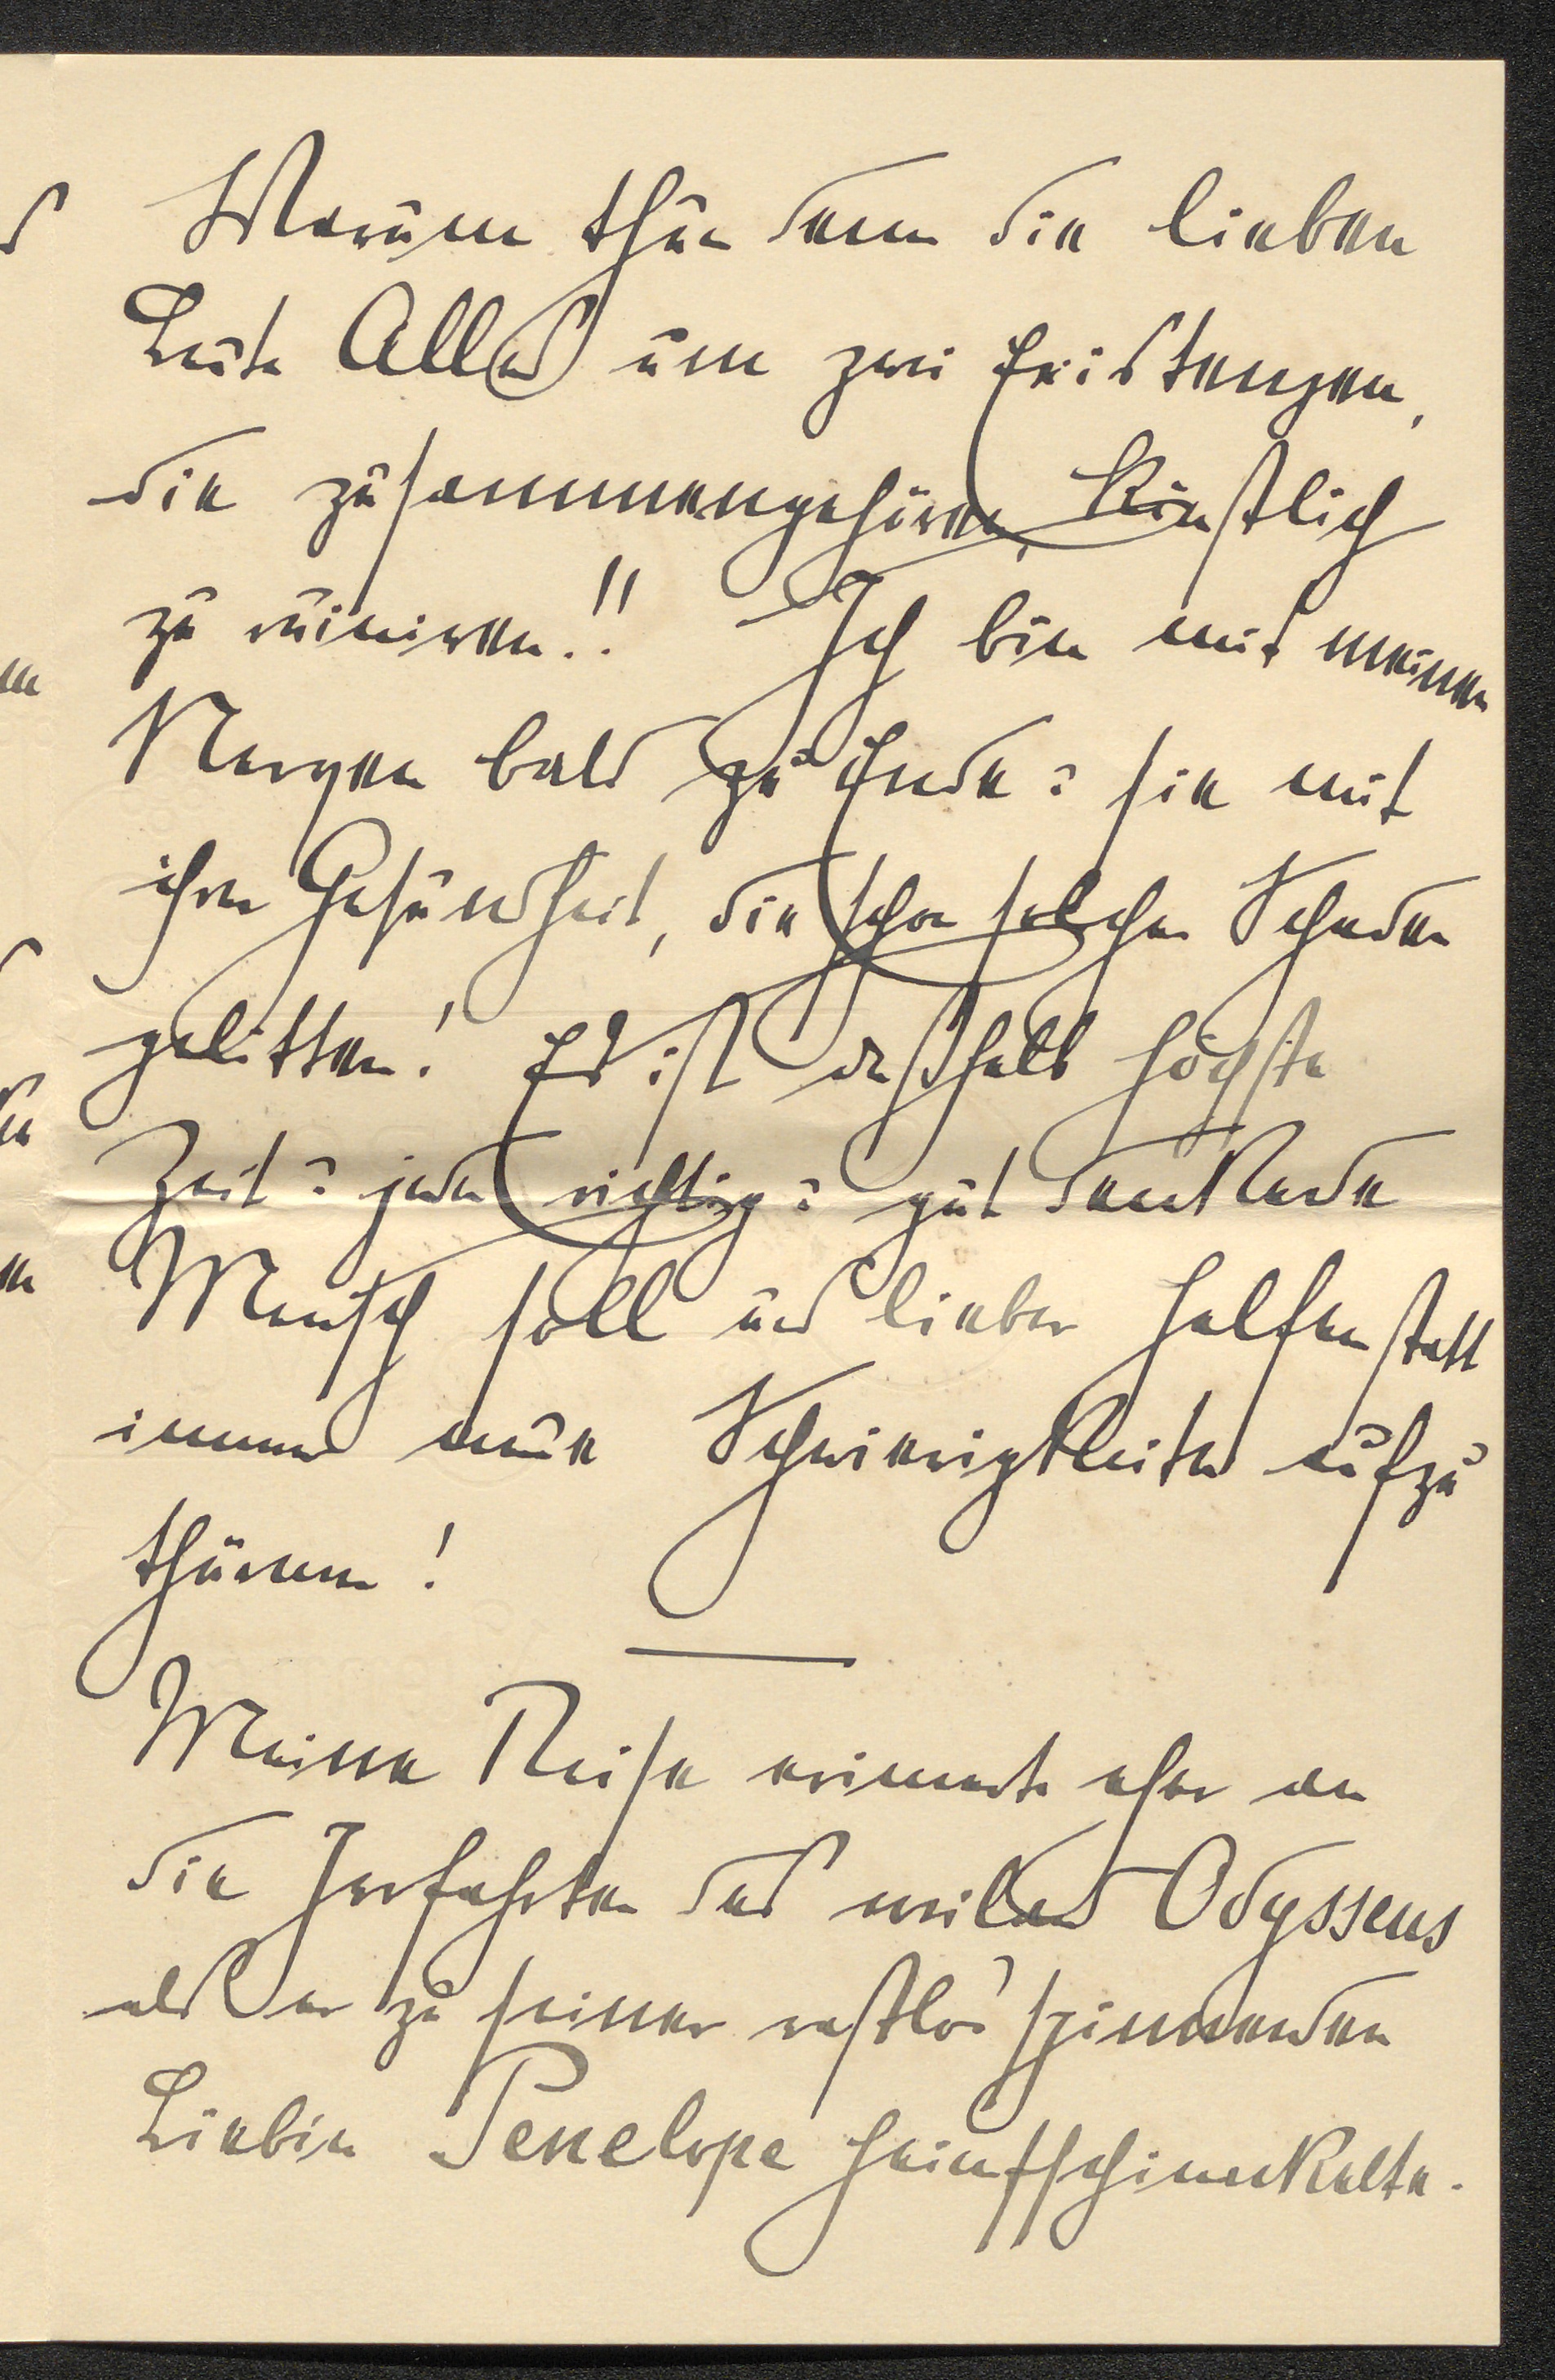 Warum thun denn die lieben
Leute Alles um zwei Existenzen,
die zusammengehören, künstlich
zu ruiniren!! Ich bin mit meinen
Nerven bald zu Ende: sie mit
ihrer Gesundheit, die schon solchen Schaden
gelitten! Es ist deßhalb höchste
Zeit: jeder richtig: gut denkende
Mensch soll uns lieber helfen statt
immer neue Schwierigkeiten aufzu
thürmen!
Meine Reise erinnerte eher an
die Irrfahrten des weiland Odysseus
als er zu seiner rastlos spinnenden
Liebin Penelope